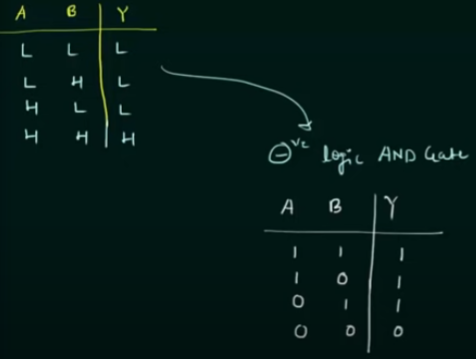 A B Y
L L L
L H L
H L L
H H H
⊖ve logic AND Gate
A B Y
1 1 1
1 0 1
0 1 1
0 0 0